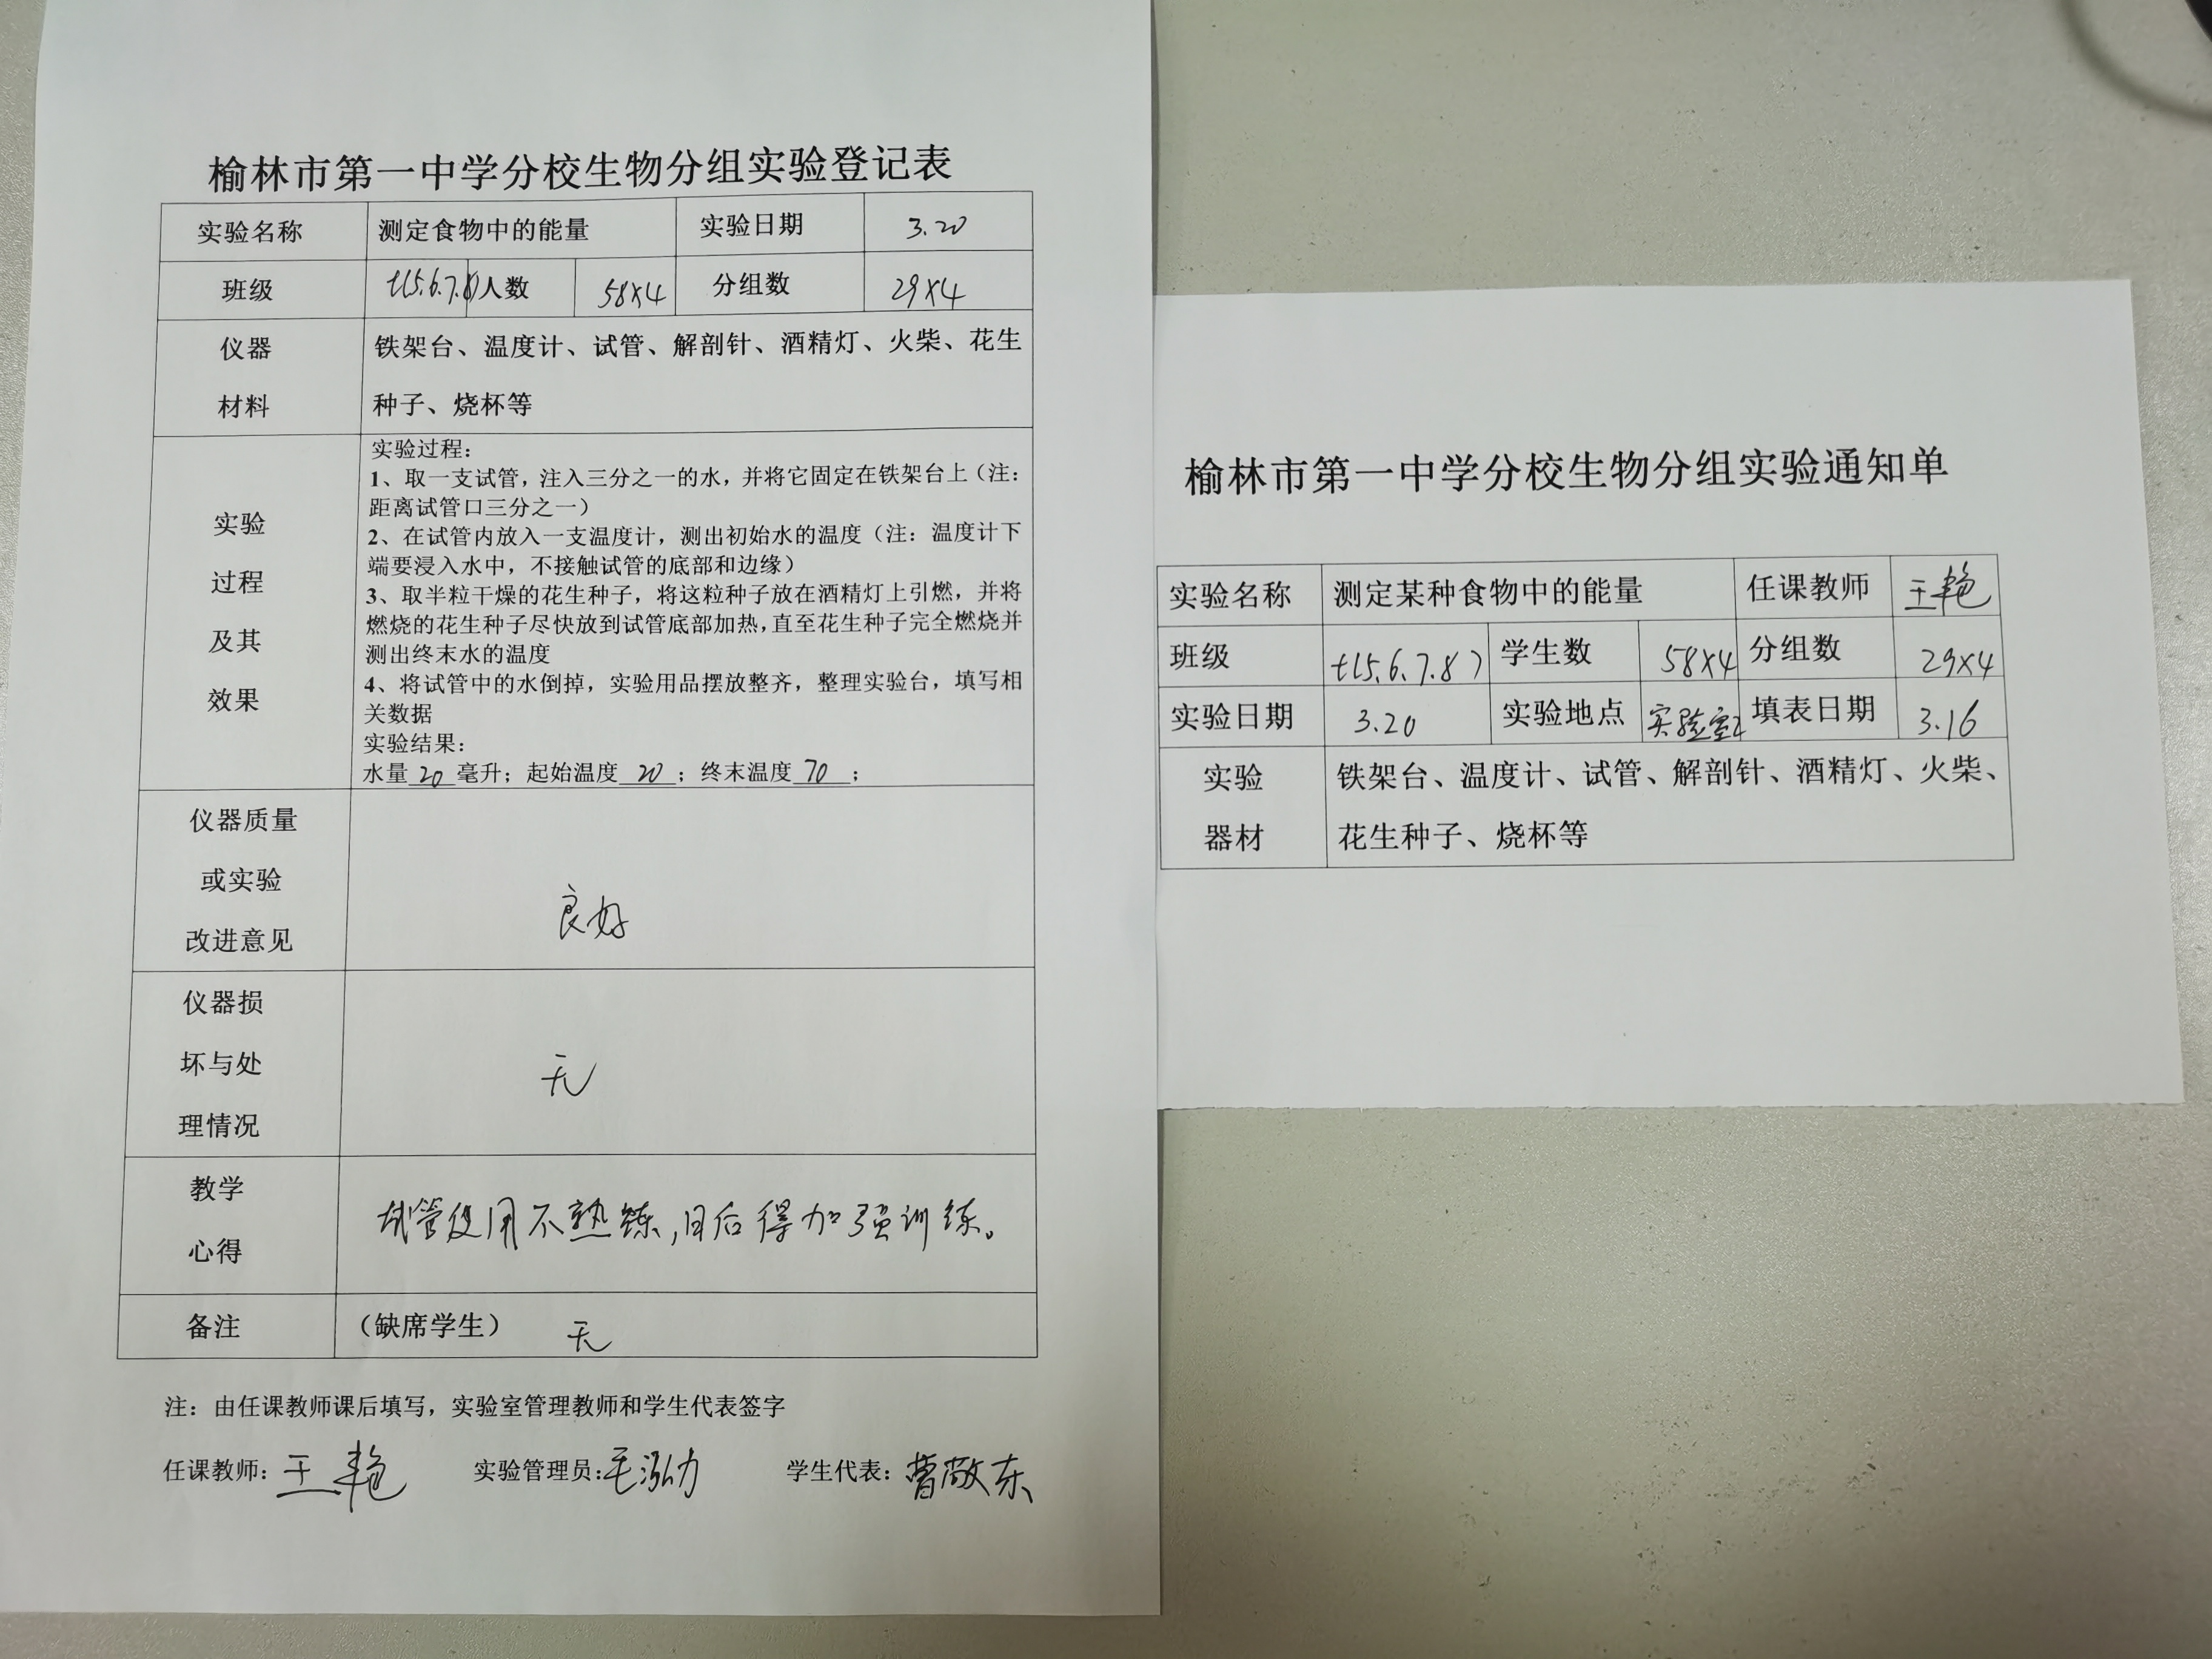 榆林市第一中学分校生物分组实验登记表
实验名称 测定食物中的能量 实验日期 3.20
班级 七(5.6.7.8) 人数 58×4 分组数 29×4
仪器 铁架台、温度计、试管、解剖针、酒精灯、火柴、花生
材料 种子、烧杯等
实验过程:
1、取一支试管,注入三分之一的水,并将它固定在铁架台上(注:
距离试管口三分之一)
实验 2、在试管内放入一支温度计,测出初始水的温度(注:温度计下
端要浸入水中,不接触试管的底部和边缘)
过程 3、取半粒干燥的花生种子,将这粒种子放在酒精灯上引燃,并将
燃烧的花生种子尽快放到试管底部加热,直至花生种子完全燃烧并
及其 测出终末水的温度
效果 4、将试管中的水倒掉,实验用品摆放整齐,整理实验台,填写相
关数据
实验结果:
水量 20 毫升;起始温度 20 ;终末温度 70 ;
仪器质量
或实验 良好
改进意见
仪器损
坏与处 无
理情况
教学 试管使用不熟练,日后得加强训练。
心得
备注 (缺席学生) 无
注:由任课教师课后填写,实验室管理教师和学生代表签字
任课教师:王艳 实验管理员:毛泓力 学生代表:曹敬东
榆林市第一中学分校生物分组实验通知单
实验名称 测定某种食物中的能量 任课教师 王艳
班级 七(5.6.7.8) 学生数 58×4 分组数 29×4
实验日期 3.20 实验地点 实验室2 填表日期 3.16
实验 铁架台、温度计、试管、解剖针、酒精灯、火柴、
器材 花生种子、烧杯等